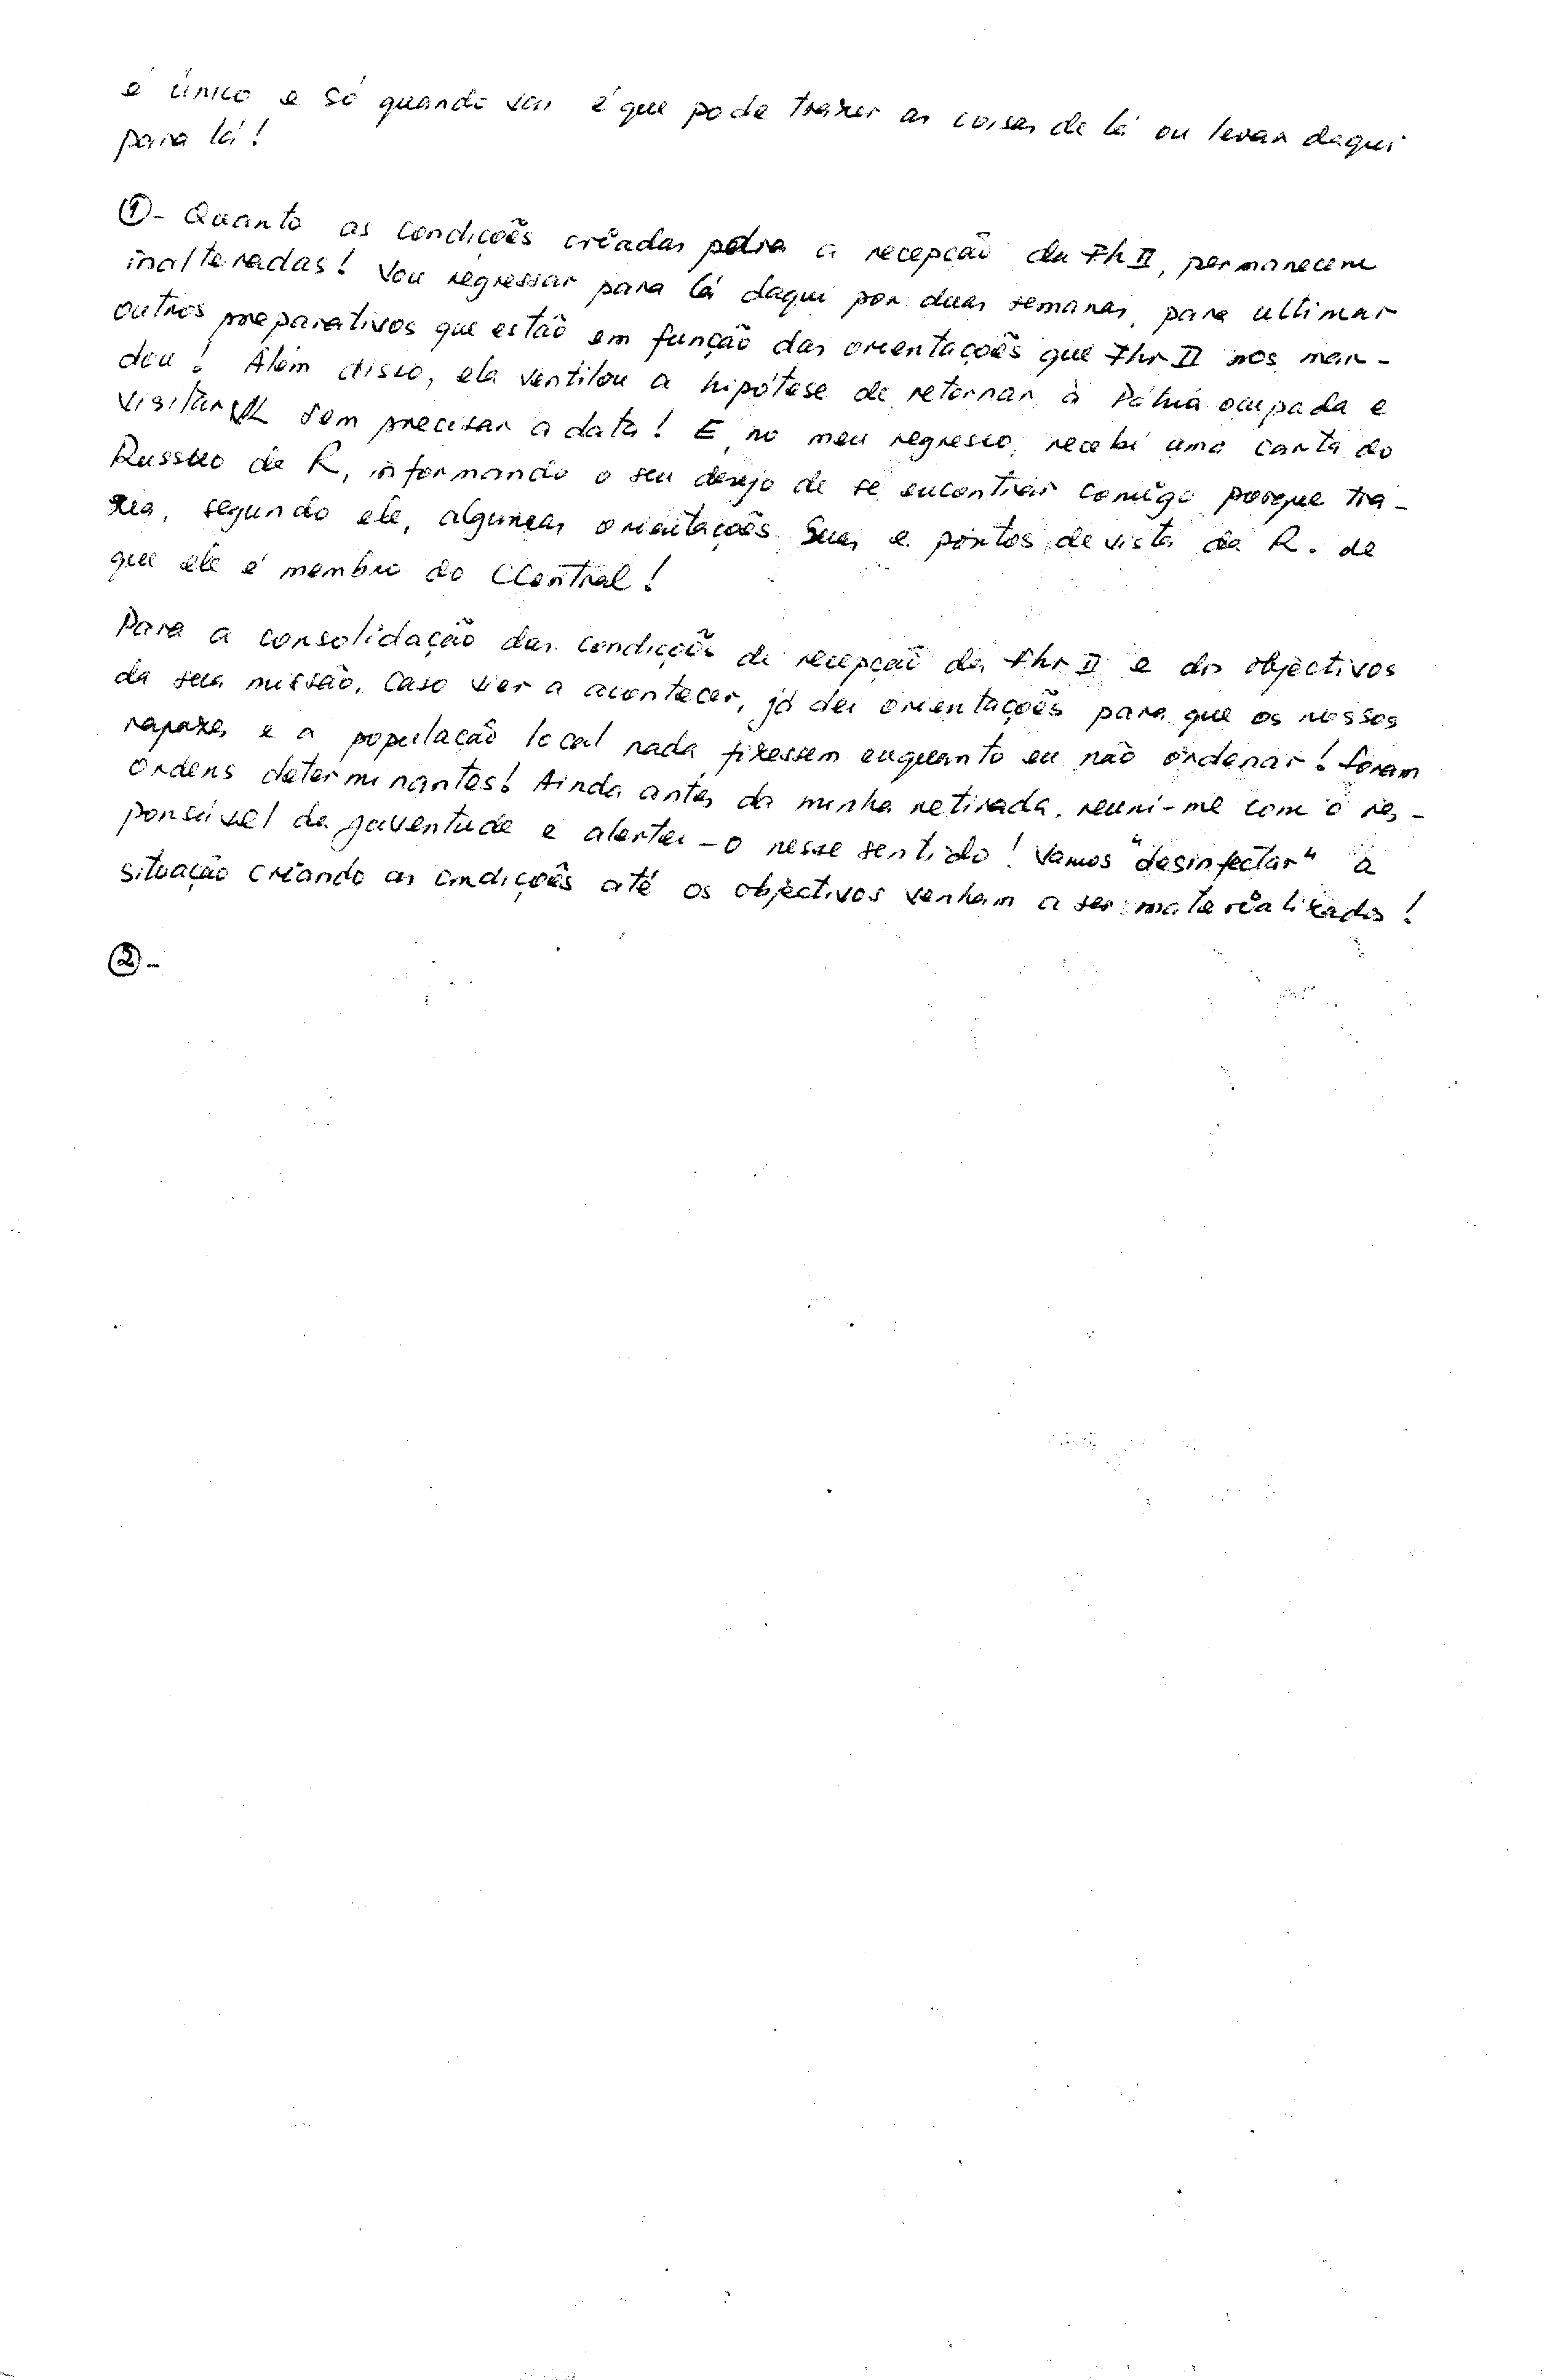 é único e só quando vai é que pode trazer as coisas de lá ou levar daqui
para lá!
①- Quanto as condições criadas para a recepção da Fh II, permanecem
inalteradas! Vou regressar para lá daqui por duas semanas, para ultimar
outros preparativos que estão em função das orientações que Fhr II nos man-
dou! Além disso, ela ventilou a hipótese de retornar à Pátria ocupada e
visitar sem precisar a data! E, no meu regresso, recebi uma carta do
Russuo de R, informando o seu desejo de se encontrar comigo porque tra-
zia, segundo ele, algumas orientações Suas e pontos de vista da R. de
que ele é membro do CCentral!
Para a consolidação das condições de recepção da Fhr II e dos objectivos
da sua missão, caso vier a acontecer, já dei orientações para que os nossos
rapazes e a população local nada fizessem enquanto eu não ordenar! Foram
ordens determinantes! Ainda antes da minha retirada, reuni-me com o res-
ponsável da juventude e alertei-o nesse sentido! Vamos "desinfectar" a
situação criando as condições até os objectivos venham a ser materializados!
②-